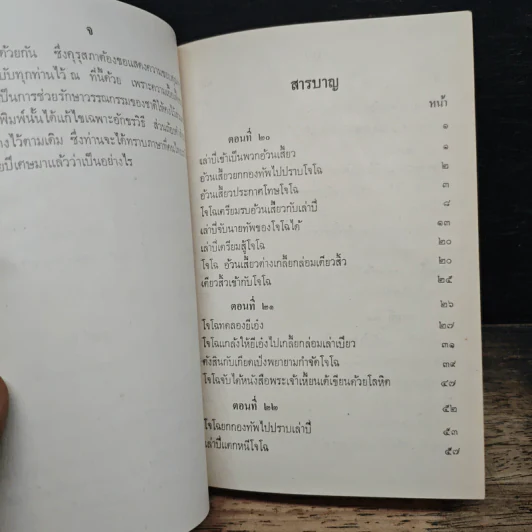 จ
ด้วยกัน ซึ่งคุรุสภาต้องขอแสดงความขอบคุณ
ฉบับทุกท่านไว้ ณ ที่นี้ด้วย เพราะความ
เป็นการช่วยรักษาวรรณกรรมของชาติ
พิมพ์นั้นได้แก้ไขเฉพาะอักขรวิธี ส่วน
างไว้ตามเดิม ซึ่งท่านจะได้ทราบภาษา
อยปีเศษมาแล้วว่าเป็นอย่างไร
สารบาญ
หน้า
ตอนที่ ๒๐ ๑
เล่าปี่เข้าเป็นพวกอ้วนเสี้ยว ๑
อ้วนเสี้ยวยกกองทัพไปปราบโจโฉ ๒
อ้วนเสี้ยวประกาศโทษโจโฉ ๓
โจโฉเตรียมรบอ้วนเสี้ยวกับเล่าปี่ ๘
เล่าปี่จับนายทัพของโจโฉได้ ๑๓
เล่าปี่เตรียมสู้โจโฉ ๒๐
โจโฉ อ้วนเสี้ยวต่างเกลี้ยกล่อมเตียวสิ้ว ๒๐
เตียวสิ้วเข้ากับโจโฉ ๒๕
ตอนที่ ๒๑ ๒๖
โจโฉทดลองยีเอ๋ง ๒๗
โจโฉแกล้งให้ยีเอ๋งไปเกลี้ยกล่อมเล่าเปียว ๓๑
ตังสินกับเกียดเป๋งพยายามกำจัดโจโฉ ๓๙
โจโฉจับได้หนังสือพระเจ้าเหี้ยนเต้เขียนด้วยโลหิต ๔๗
ตอนที่ ๒๒ ๕๒
โจโฉยกกองทัพไปปราบเล่าปี่ ๕๓
เล่าปี่แตกหนีโจโฉ ๕๗